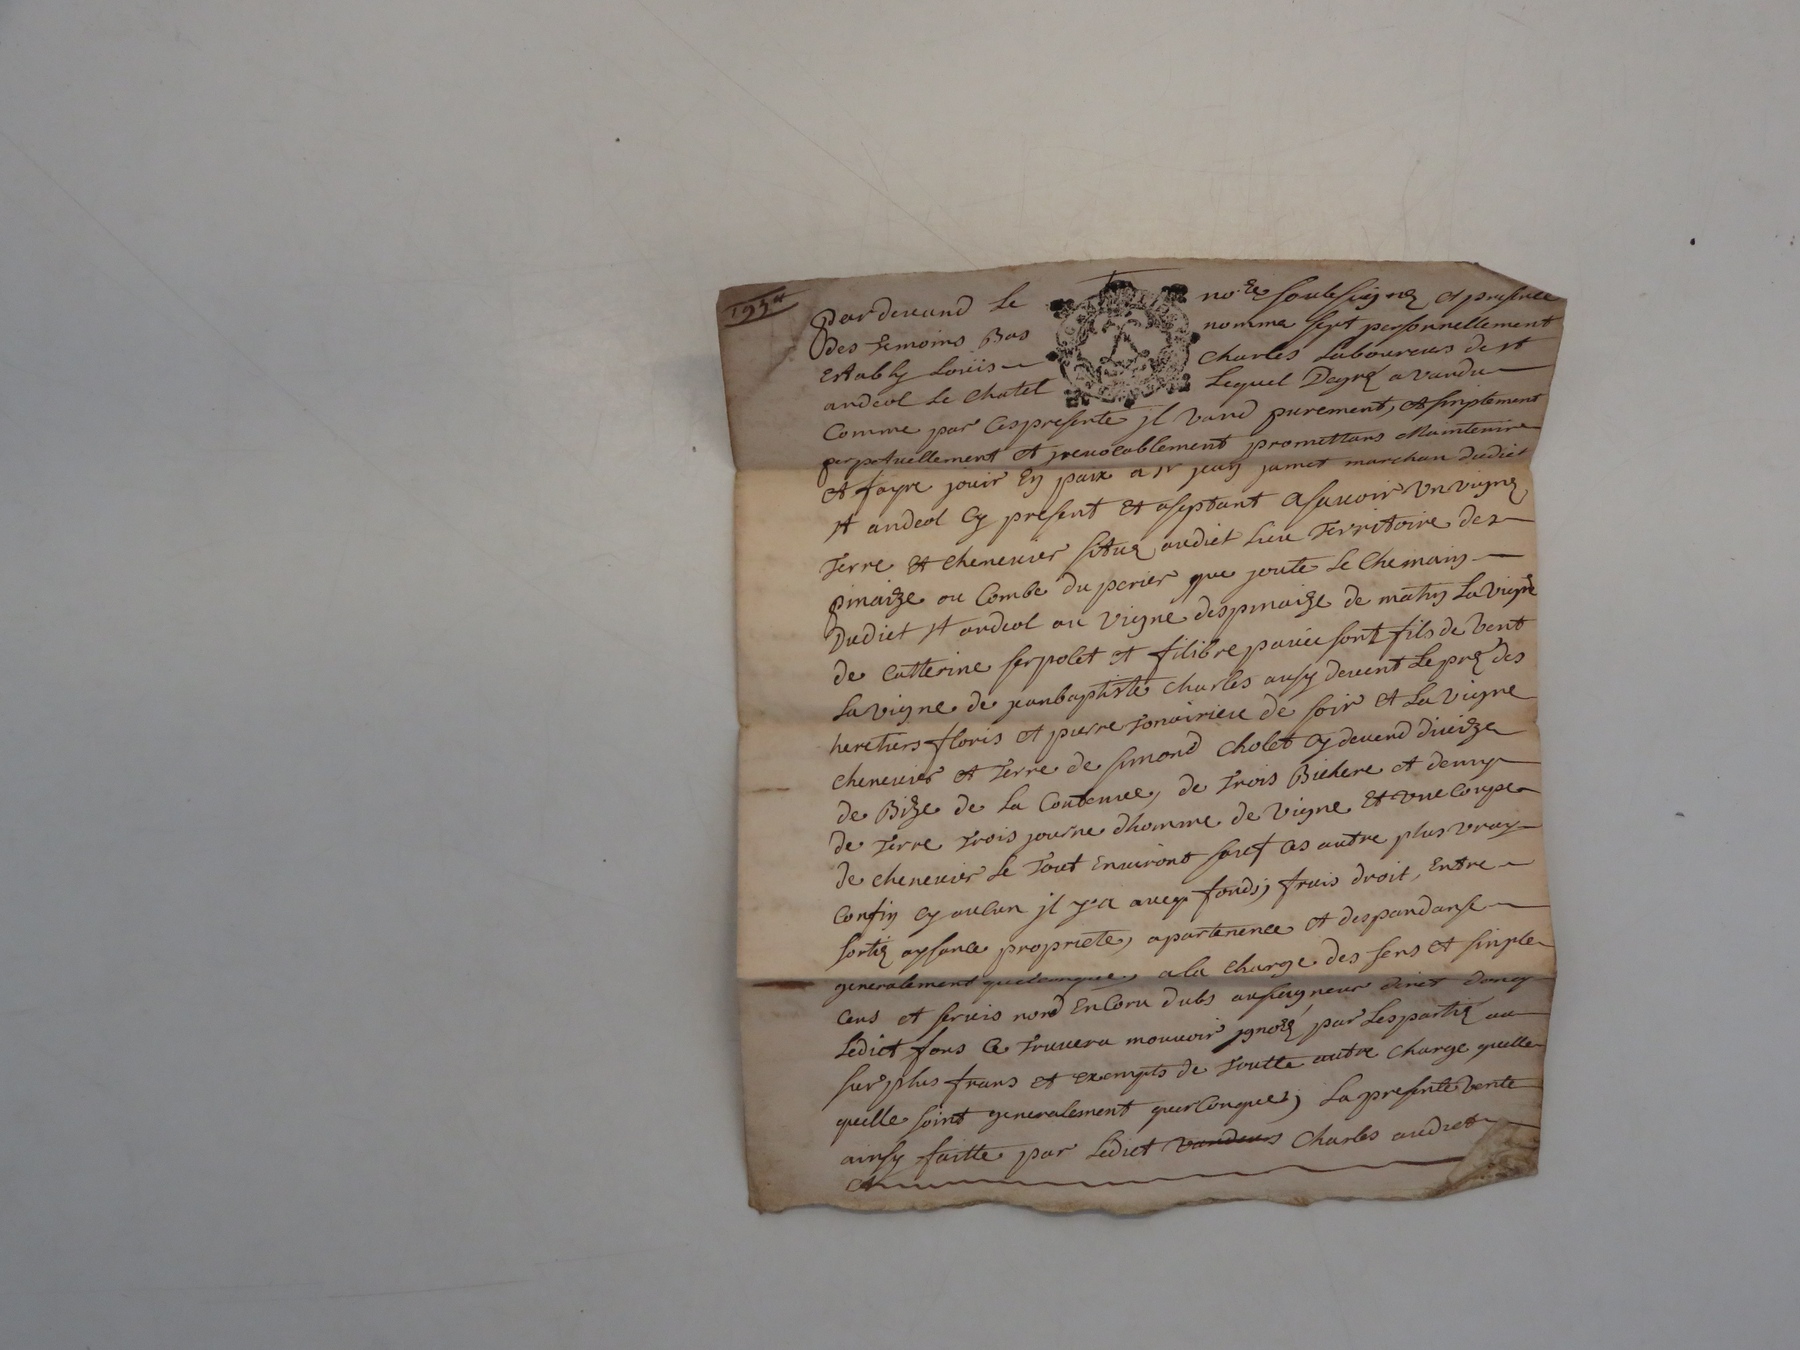 Par devand Le no.re soubsuigne et presence
des temoins Bas nomma sept personnellement
Estably Loüis Charles Laboureus de st
andeol Le Chatel Lequel Degré a vandu
Comme par Cespresente jl vand purement, et sinplement
perpetuellement et jrevocablement promettans Maintenir
et fayre jouir En paix a sr jean jamet marchan dudict
st andeol Cy present et aseptant asavoir un vigne
Terre et chenevier situe audict Lieu Territoire des
pinaize ou Combe du perier que joute Le Chemain
Dudict st andeol au vigne despinaize de matin La vigne
de Catterine serpolet et filibre pariee sont fils de vent
La vigne de jeanbaptiste Charles ausy devent Le pré des
heretiers floris et pierre de soir et La vigne
chenevier et Terre de simond Cholet Cy devend
de Bize de La Contenue, de Trois Bichere et demy
de Terre Trois journe dhomme de vigne Et une Coupe
de chenevier Le Tout Environt sauf Les autre plus vray
Confin Cy aucun jl y'a aveq fonds, frais droit, Entre
sortie aysance propriete, apartenence et despandanse
generalement quelconque, a la Charge des sens et sinple
Cens et servis nord Encoru dubs auseigneur diret donq
Ledict fons Ce Truvera mouvoir par Les partie au
surplus frans et exempts de Toutte autre Charge quelle
quelle soint generalement quelconque; La presente vente
ainsy faitte par Ledict vandeurs Charles audict